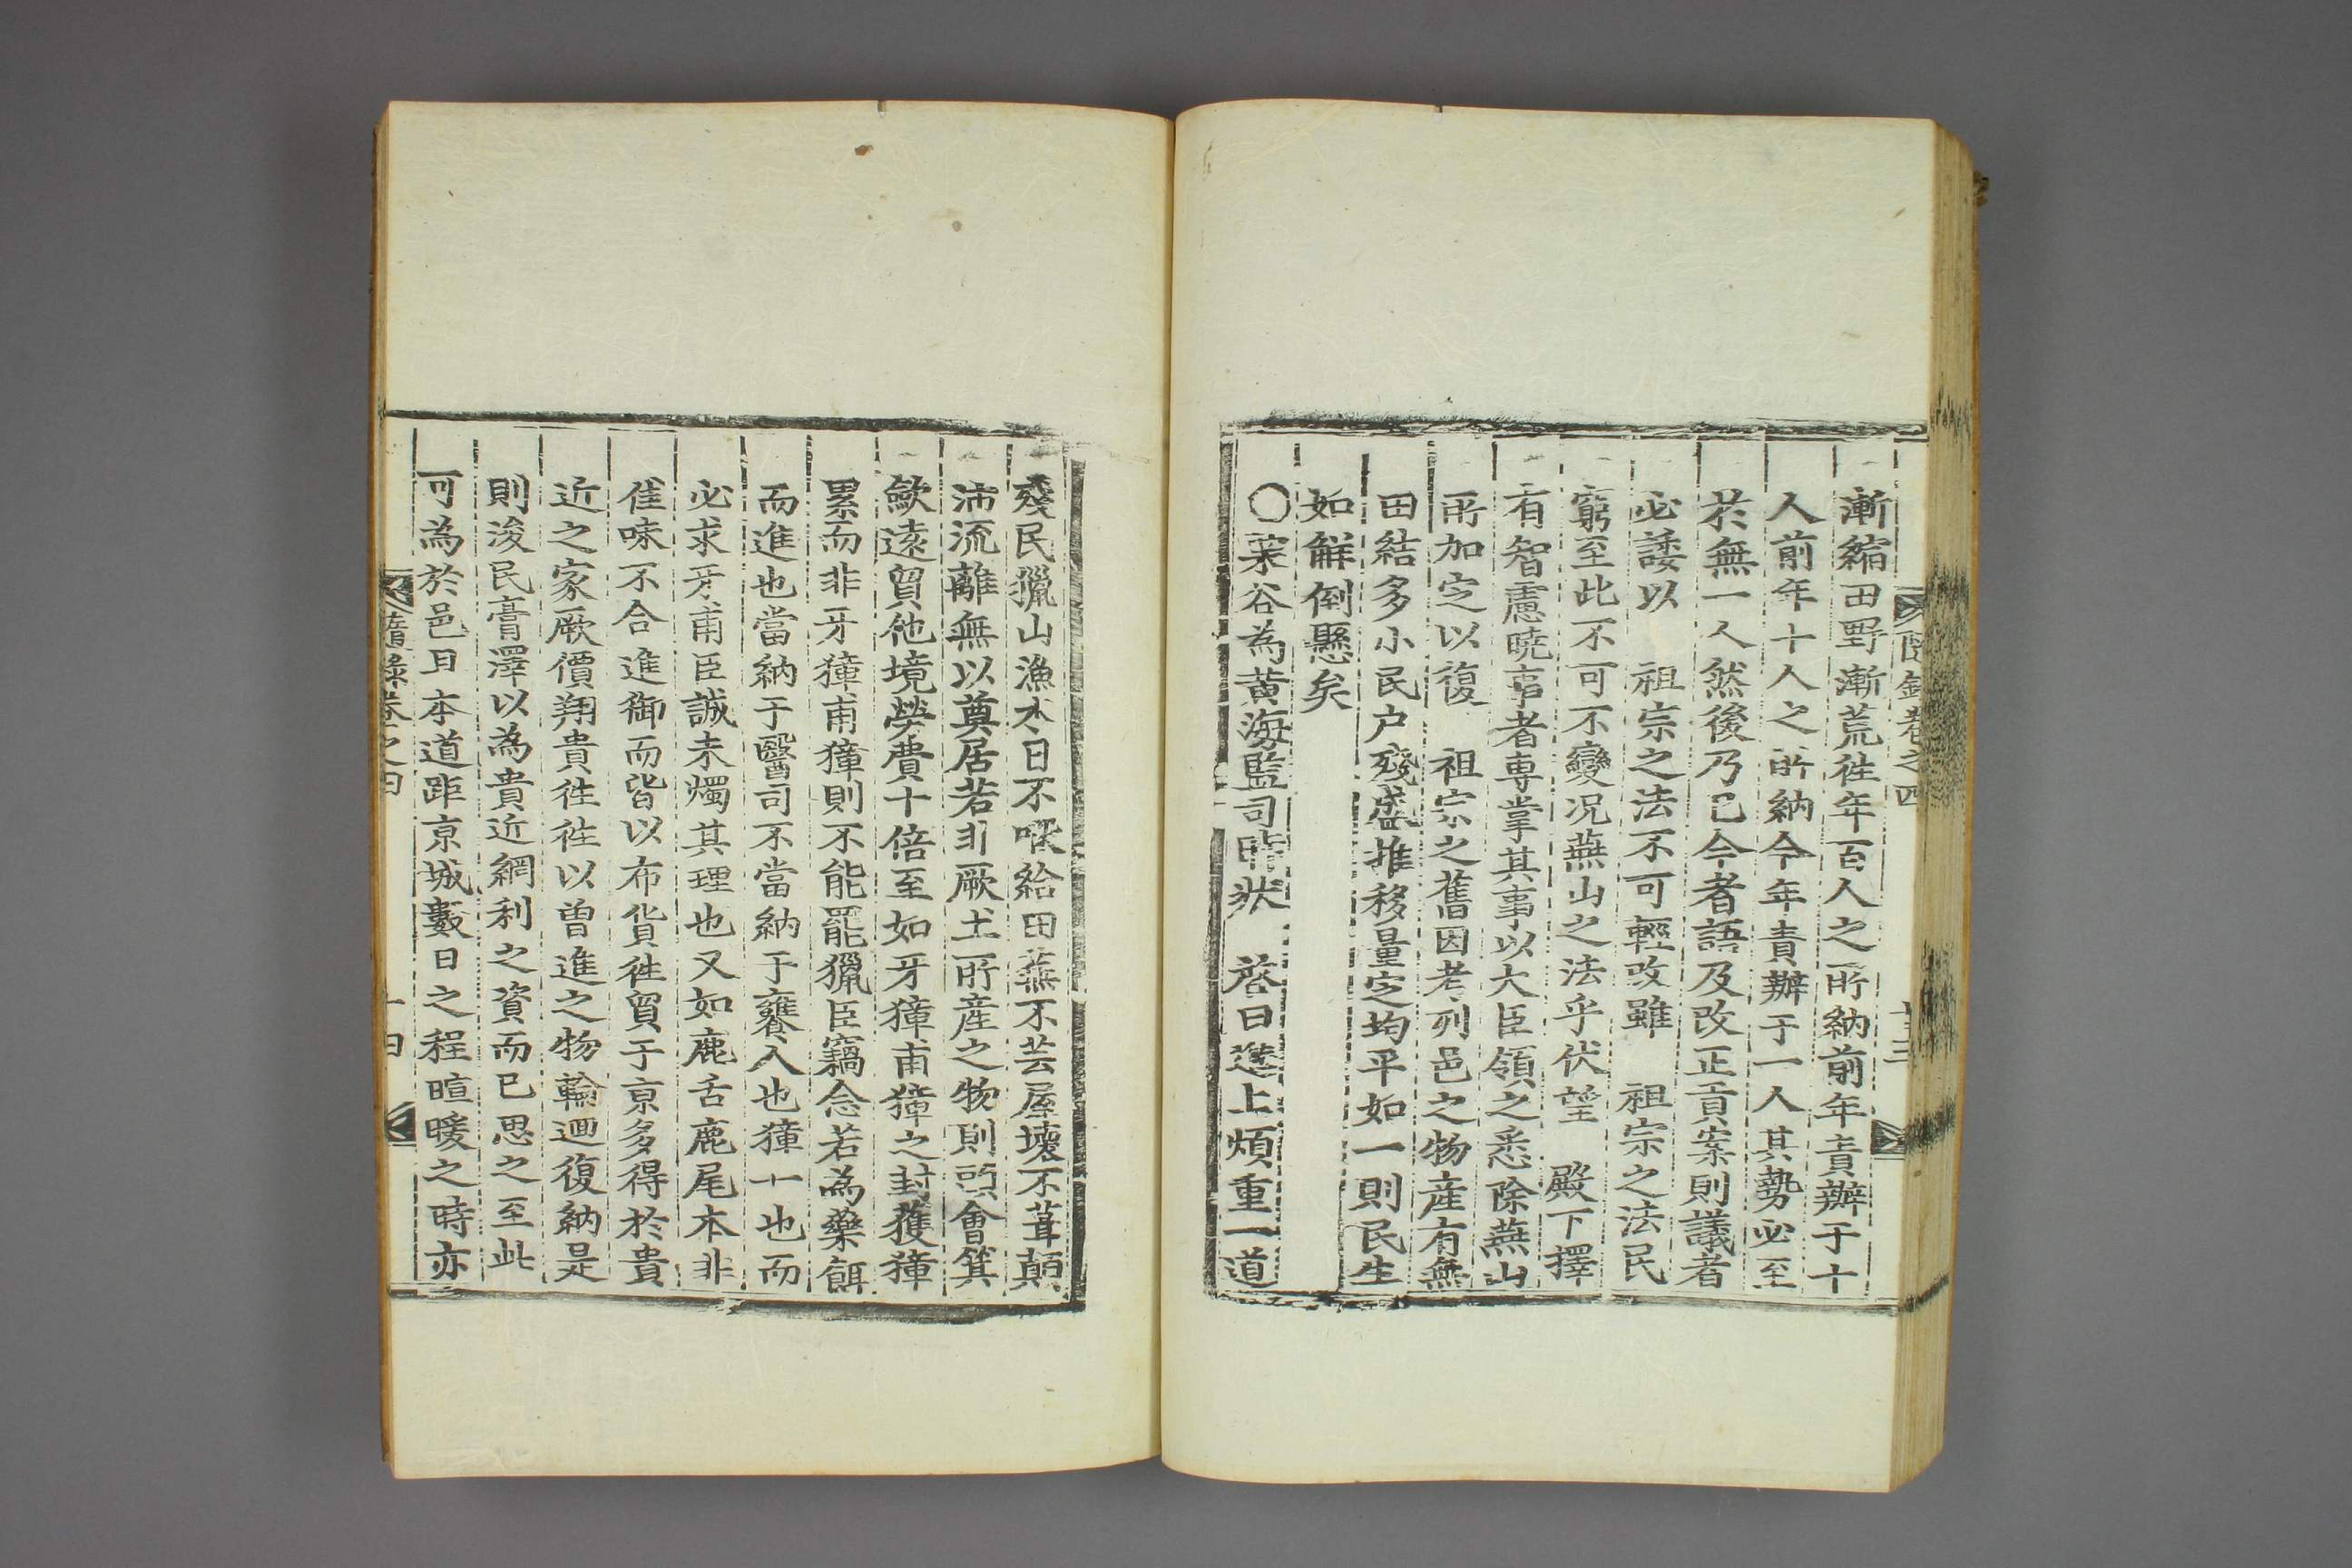 漸縮田野漸荒徃年百人之所納前年責辦于十
人前年十人之所納今年責辦于一人其勢必至
於無一人然後乃已今者語及改正貢案則議者
必諉以 祖宗之法不可輕改雖 祖宗之法民
窮至此不可不變况燕山之法乎伏望 殿下擇
有智慮曉事者專掌其事以大臣領之悉除燕山
所加㝎以復 祖宗之舊因考列邑之物産有無
田結多小民户殘盛推移量㝎均平如一則民生
如觧倒懸矣
○栗谷為黄海監司時狀 啓曰進上煩重一道
殘民獵山漁水日不暇給田蕪不芸屋壞不葺顛
沛流離無以奠居若非厥土所産之物則頭會箕
歛遠貿他境勞費十倍至如牙獐甫獐之封獲獐
累而非牙獐甫獐則不能罷獵臣竊念若為藥餌
而進也當納于醫司不當納于饔人也獐一也而
必求牙甫臣誠未燭其理也又如鹿舌鹿尾本非
佳味不合進御而皆以布貨徃貿于京多得於貴
近之家厥價翔貴徃徃以曽進之物輪迴復納是
則浚民膏澤以為貴近網利之資而已思之至此
可為於邑且本道距京城數日之程暄暖之時亦